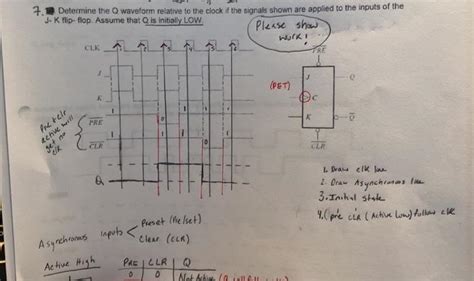 7. Determine the Q waveform relative to the clock if the signals shown are applied to the inputs of the
J- K flip- flop. Assume that Q is initially LOW.
Please show
work!
CLK
J
K
PRE
CLR
Q
active will
(PET)
PRE
J
Q
C
K
Q
CLR
1. Draw clk line
2. Draw Asynchronous line
3. Initial state
4. (pre clr (Active low) follow clk
Asynchronous inputs < Preset (Pre/set)
Clear (CLR)
Active High
PRE CLR Q
0 0 Not Active